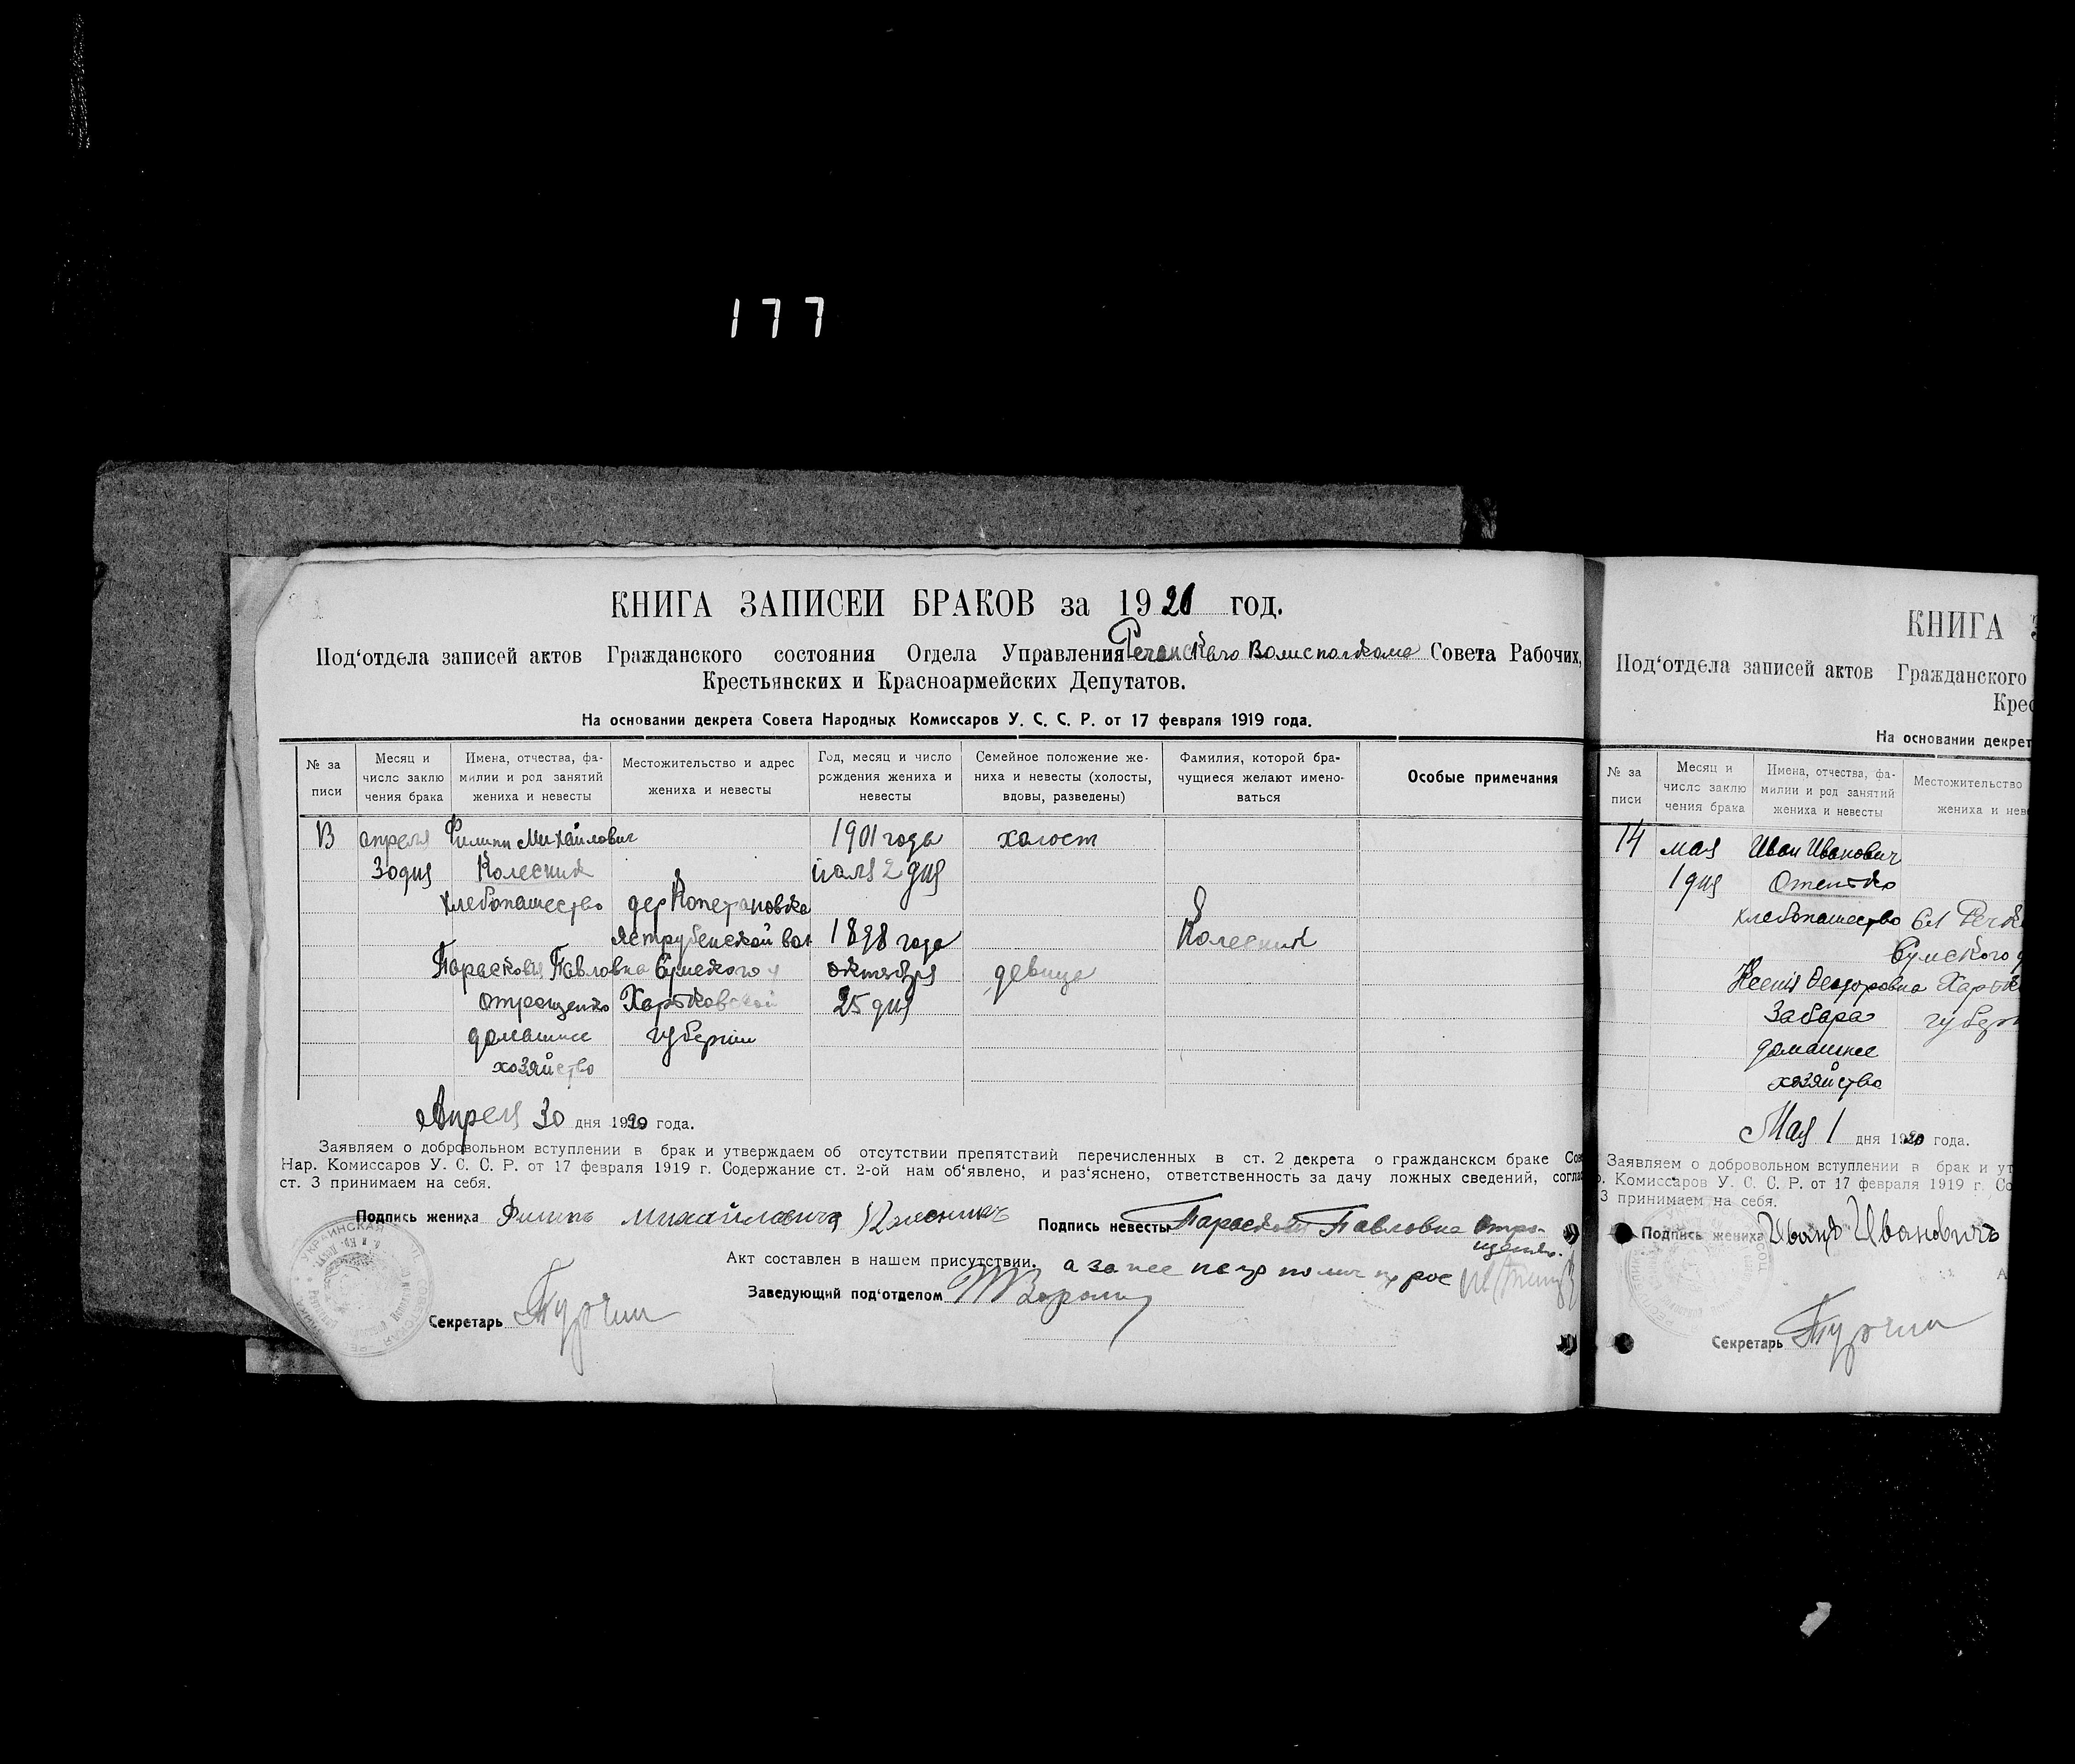 177
КНИГА ЗАПИСЕЙ БРАКОВ за 1920 год.
Под‘отдела записей актов Гражданского состояния Отдела Управления Речанскаго Совета Рабочих,
Крестьянских и Красноармейских Депутатов.
На основании декрета Совета Народных Комиссаров У. С. С. Р. от 17 февраля 1919 года.
№ за писи
Месяц и число заклю чения брака
Имена, отчества, фа- милии и род занятий жениха и невесты
Местожительство и адрес жениха и невесты
Год, месяц и число рождения жениха и невесты
Семейное положение же- ниха и невесты (холосты, вдовы, разведены)
Фамилия, которой бра- чущиеся желают имено- ваться
Особые примечания
13 апреля Филипп Михайлович 1901 года холост
30 дня Колесник июля 2 дня
хлебопашество дер
Яструбенской вол 1898 года Колесник
Парасковия Павловна Сумского у октября девица
Отрощенко Харьковской 25 дня
домашнее губернии
хозяйство
Апреля 30 дня 1920 года.
Заявляем о добровольном вступлении в брак и утверждаем об отсутствии препятствий перечисленных в ст. 2 декрета о гражданском браке Сов
Нар. Комиссаров У. С. С. Р. от 17 февраля 1919 г. Содержание ст. 2-ой нам об‘явлено, и раз‘яснено, ответственность за дачу ложных сведений, соглас
ст. 3 принимаем на себя.
Подпись жениха Филипъ Михайловичъ Колесникъ Подпись невесты Параскови Павловна Отро-
щенко.
Акт составлен в нашем присутствии. а за нее
Заведующий под‘отделом
Секретарь
КНИГА З
Под‘отдела записей актов Гражданского
Крес
На основании декрет
№ за писи
Месяц и число заклю чения брака
Имена, отчества, фа- милии и род занятий жениха и невесты
Местожительство жениха и неве
14 мая Иван Иванович
1 дня
хлебопашество
Сумского у
Ксения Феодоровна Харьк
Забара губерн
домашнее
хозяйство
Мая 1 дня 1920 года.
Заявляем о добровольном вступлении в брак и ут
р. Комиссаров У. С. С. Р. от 17 февраля 1919 г. Со
3 принимаем на себя.
Подпись жениха Иванъ Ивановичъ
А
Секретарь